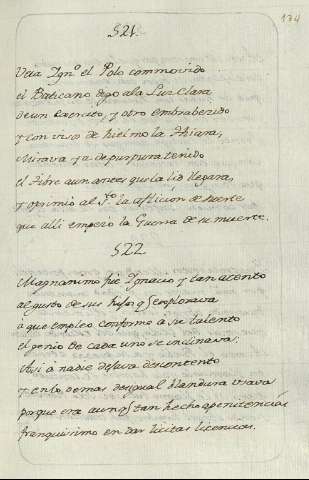 134
521.
Veia Ygn.º el Polo commovido
el Baticano dejo a la Luz Clara
de un Exercito, y otro embrabezido
y con visos de hielmo la Thiara,
Mirava ya de purpura teñido
el Tibre aun antes que la lid llegara,
y oprimio al S.to la aflicion de suerte
que alli empezo la Guerra de su muerte.
522
Magnanimo fue Ygnacio y tan atento
al gusto de sus hijos q̃ explorava
a que empleo conforme a su talento
el genio de cada uno se inclinava.
Assi a nadie dejava descontento
y en lo demas desigual blandura usava
porque era aunq̃ tan hecho a penitencias
franquisimo en dar licitas licencias.